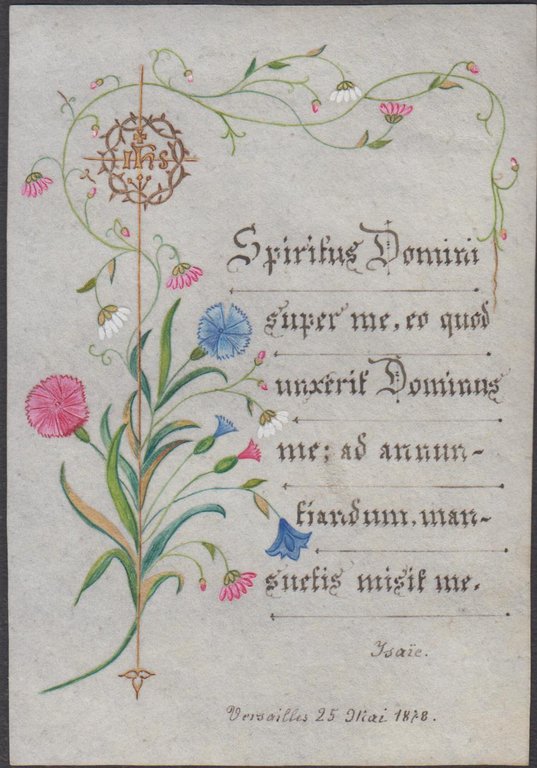 IHS
Spiritus Domini
super me, eo quod
unxerit Dominus
me; ad annun-
tiandum, man-
suetis misit me.
Isaïe.
Versailles 25 Mai 1878.